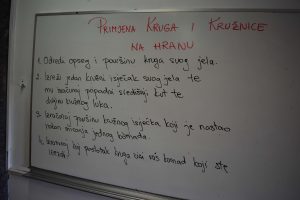 PRIMJENA KRUGA I KRUŽNICE
NA HRANU
1. Odredi opseg i površinu kruga svog jela.
2. Izreži jedan kružni isječak svog jela te
mu izračunaj pripadni središnji kut te
duljinu kružnog luka.
3. Izračunaj površinu kružnog isječka koji je nastao
nakon rezanja jednog komada.
4. Izračunaj koji postotak kruga čini vaš komad kojeg ste
izrezali.